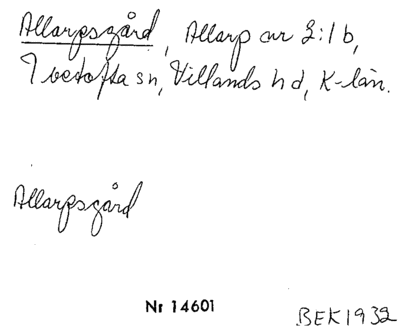 Allarpsgård, Allarp nr 2:1 b,
Ivetofta sn, Villands hd, K-län.
Allarpsgård
Nr 14601
BEK1932